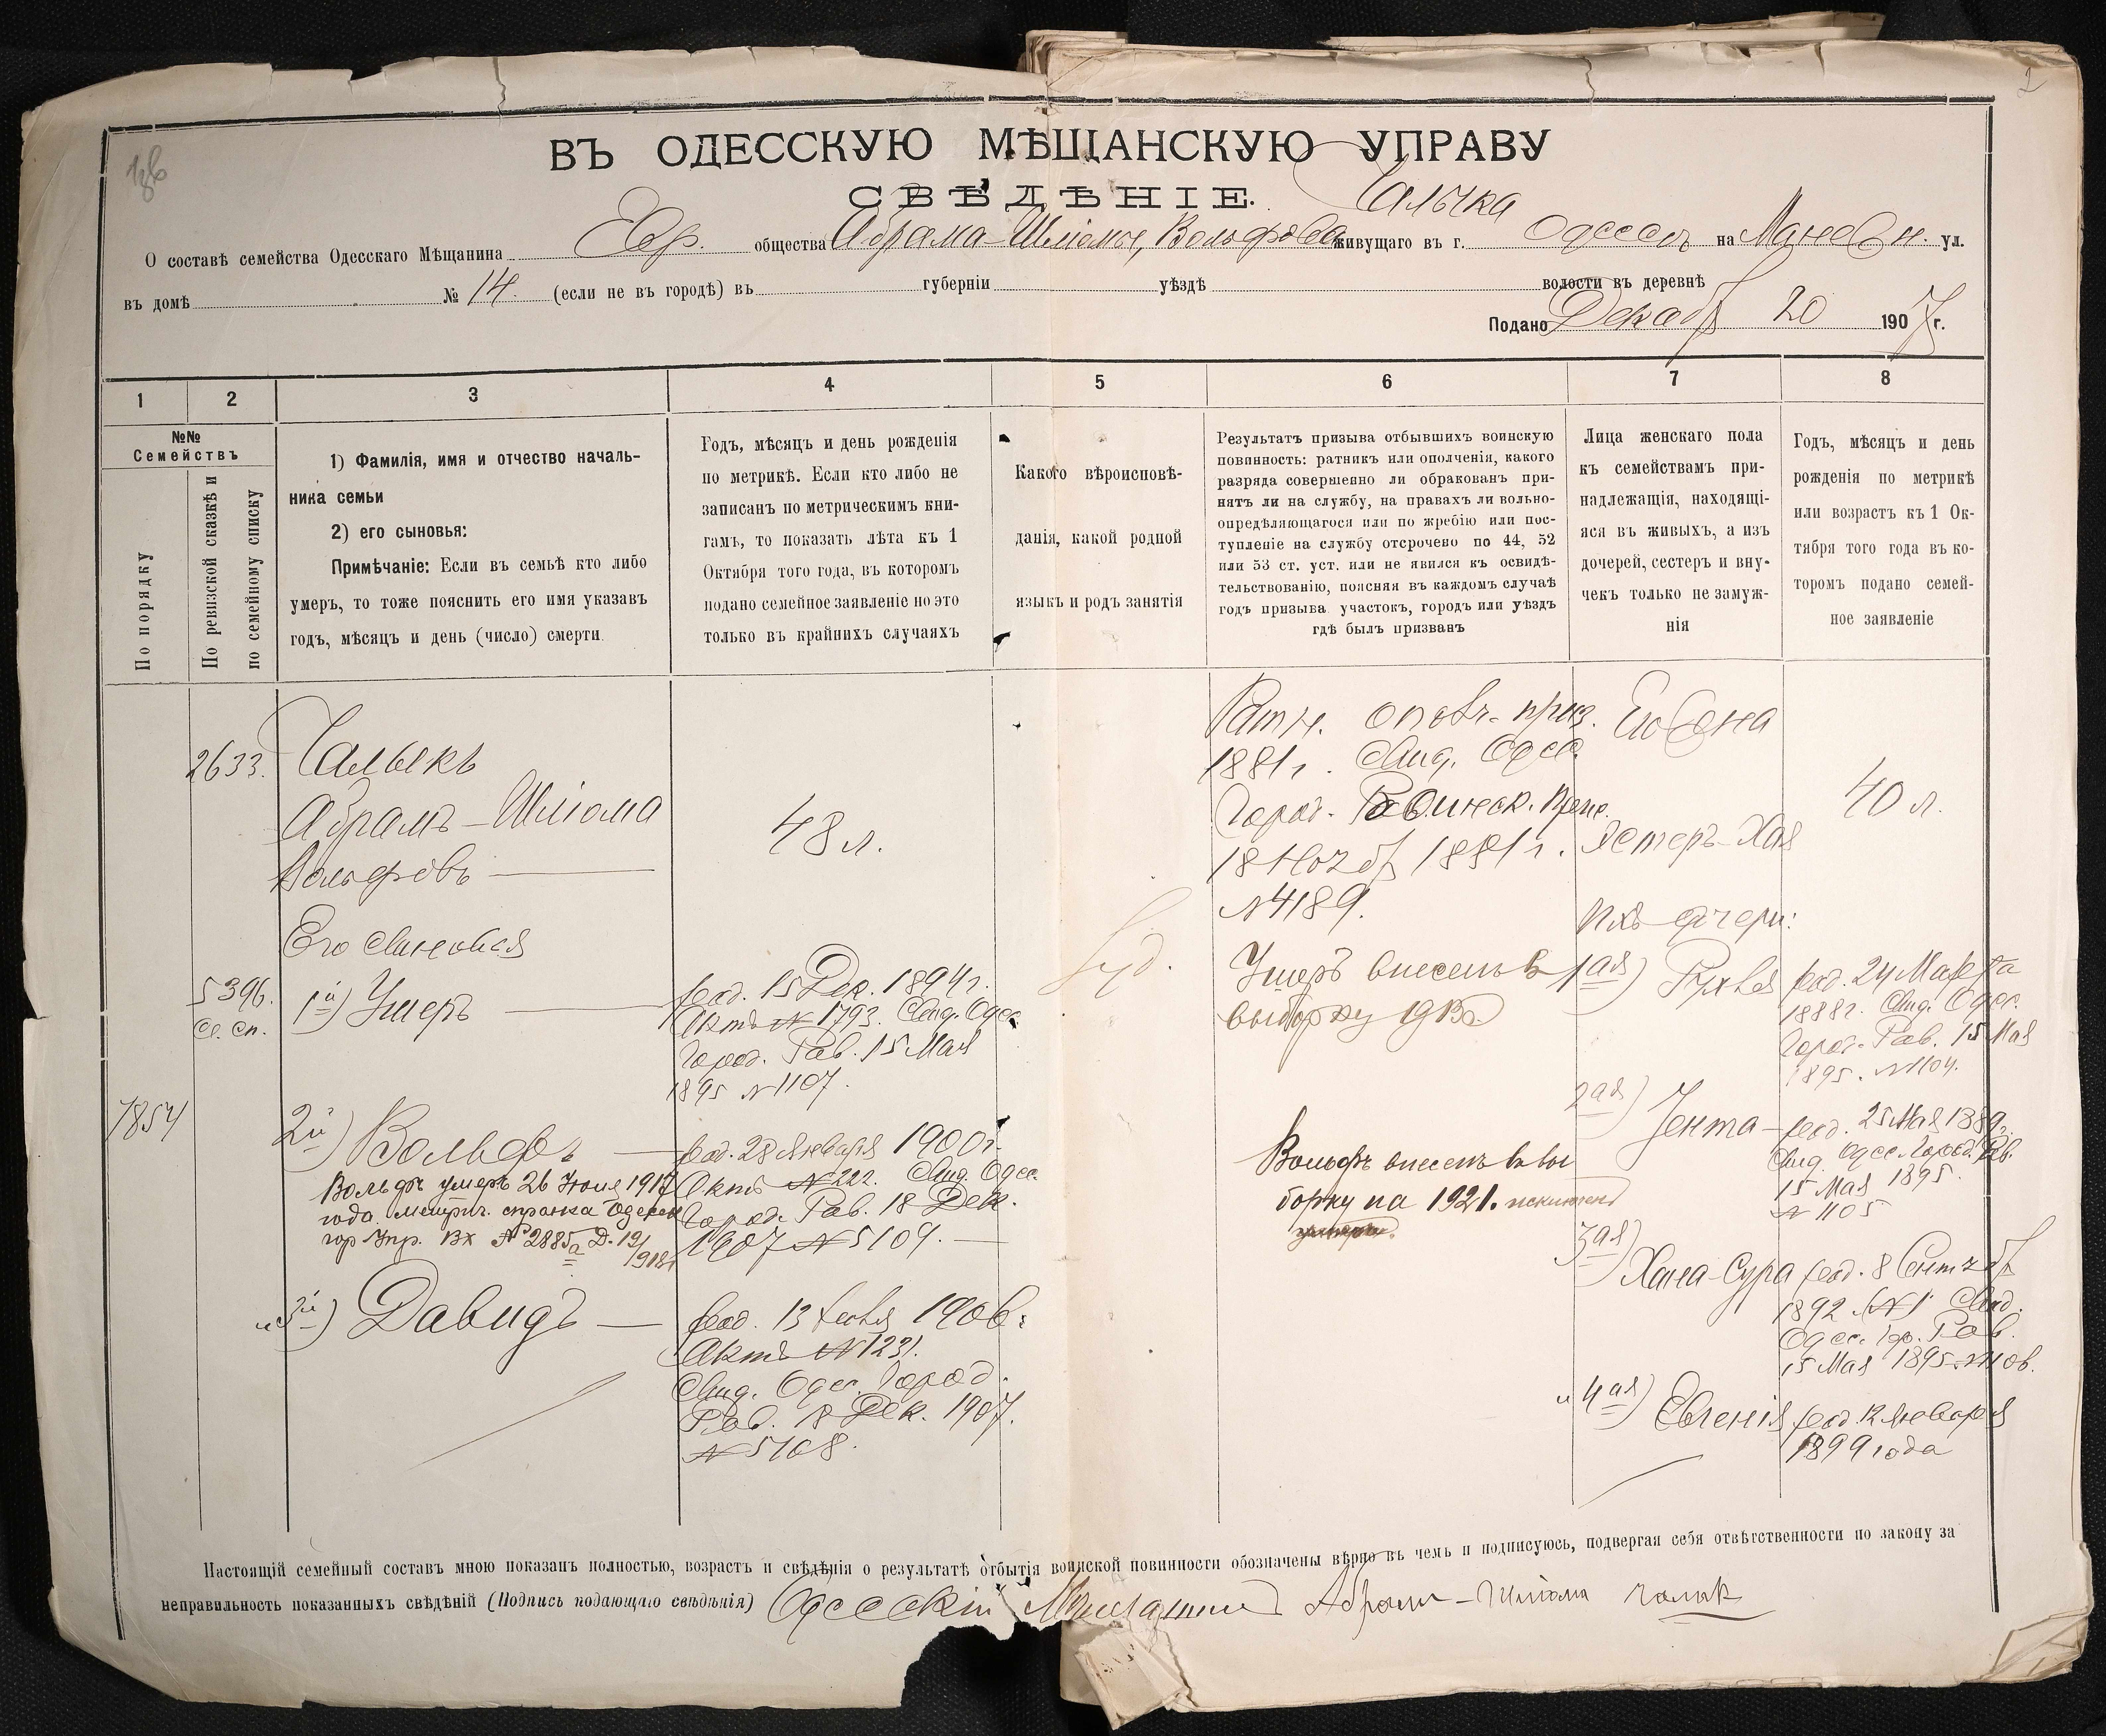 ВЪ ОДЕССКУЮ МѢЩАНСКУЮ УПРАВУ
СВѢДѢНІЕ.
О составѣ семейства Одесскаго Мѣщанина Евр. общества Абрама-Шліомы Вольфова живущаго въ г. Одессѣ на Манежн. ул.
въ домѣ № 14. (если не въ городѣ) въ губерніи уѣздѣ волости въ деревнѣ
Подано Декабр 20 1907 г.
1 2 3 4 5 6 7 8
№№
Семействъ
По порядку
По ревизской сказкѣ и
по семейному списку
1) Фамилія, имя и отчество началь-
ника семьи
2) его сыновья:
Примѣчаніе: Если въ семьѣ кто либо
умеръ, то тоже пояснить его имя указавъ
годъ, мѣсяцъ и день (число) смерти.
Годъ, мѣсяцъ и день рожденія
по метрикѣ. Если кто либо не
записанъ по метрическимъ кни-
гамъ, то показать лѣта къ 1
Октября того года, въ которомъ
подано семейное заявленіе но это
только въ крайнихъ случаяхъ
Какого вѣроисповѣ-
данія, какой родной
языкъ и родъ занятія
Результатъ призыва отбывшихъ воинскую
повинность: ратникъ или ополченія, какого
разряда совершенно ли обракованъ при-
нятъ ли на службу, на правахъ ли вольно-
опредѣляющагося или по жребію или пос-
тупленіе на службу отсрочено по 44, 52
или 53 ст. уст. или не явился къ освидѣ-
тельствованію, поясняя въ каждомъ случаѣ
годъ призыва участокъ, городъ или уѣздъ
гдѣ былъ призванъ
Лица женскаго пола
къ семействамъ при-
надлежащія, находящі-
яся въ живыхъ, а изъ
дочерей, сестеръ и вну-
чекъ только не замуж-
нія
Годъ, мѣсяцъ и день
рожденія по метрикѣ
или возрастъ къ 1 Ок-
тября того года въ ко-
торомъ подано семей-
ное заявленіе
2633.
Абрамъ-Шліома
Вольфовъ
48 л.
Ратн. ополч. приз.
1881 г. Свид. Одес.
Город. Раввинск. Прис.
18 Ноябр 1881 г.
№ 4189.
Его жена
Эстеръ-Хая
40 л.
Его Сыновья
5396.
Сем. сп.
1й) Ушеръ
род. 15 Дек. 1894 г.
Актъ № 1793. Свид. Одес.
Город. Рав. 15 Мая
1895 № 1107.
Іуд.
Ушеръ внесенъ въ
выборку 1915 г.
7854
2й) Вольфъ
род. 28 Января 1900 г.
Актъ № 222. Свид. Одес.
Город. Рав. 18 Дек.
1907 № 5109.
Вольфъ умеръ 26 Іюля 1917
года. Метрич. справка Одесск
гор Упр. Вх № 2885
Вольфъ внесенъ въ вы
борку на 1921. исключенъ
и 3й) Давидъ
род. 13 1906
Актъ № 1231.
Свид. Одес. Город.
Рав. 18 Дек. 1907.
№ 5108.
Ихъ дочери:
1ая) Рухля
род. 24 Марта
1888 г. Свид. Одес.
Город. Рав. 15 Мая
1895. № 1104.
2ая) Гента
род. 25 Мая 1889 г.
Свид. Одес. Город. Рав.
15 Мая 1895.
№ 1105
3ая) Хана-Сура
род. 8 Сентябр
1892 Свид.
Одес. гор. Рав.
15 Мая 1895 № 1106.
и 4ая) Евгенія
род. 12 Января
1899 года
Настоящій семейный составъ мною показанъ полностью, возрастъ и свѣдѣнія о результатѣ отбытія воинской повинности обозначены вѣрно въ чемъ и подписуюсь, подвергая себя отвѣтственности по закону за
неправильность показанныхъ свѣдѣній (Подпись подающаго свѣдѣнія) Одесскій Мѣщанинъ Абрамъ-Шліома